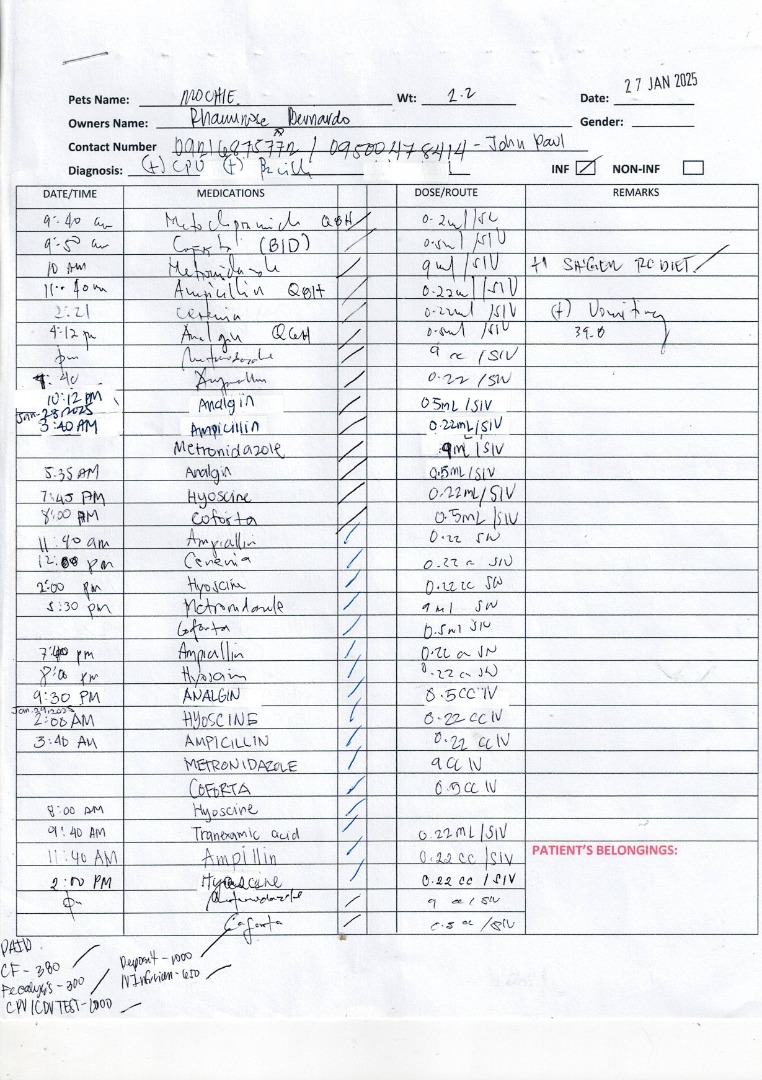 27 JAN 2025
Pets Name: MOCHIE. Wt: 2.2 Date:
Owners Name: Rhamnrose Bernardo Gender:
Contact Number / 09500478414 - John Paul
Diagnosis: (+) CPV (+) Bacilli INF NON-INF
DATE/TIME MEDICATIONS DOSE/ROUTE REMARKS
9:40 am Q8H 0.2ml/SC
9:50 am (BID) 0.5ml/SIV
10 AM Metronidazole 9ml/SIV
11:40am Ampicillin Q8H 0.22ml/SIV
2:21 Cerenia 0.22ml/SIV (+) Vomiting
4:12 pm Analgin Q6H 0.5ml/SIV 39.8
pm 9 cc/SIV
7:40 0.22/SIV
10:12 PM Analgin 05mL/SIV
Jan-28-2025
3:40AM Ampicillin 0.22mL/SIV
Metronidazole 9mL/SIV
5:35 AM Analgin 0.5mL/SIV
7:45 PM Hyoscine 0.22mL/SIV
8:00 AM Coforta 0.5mL/SIV
11:40 am Ampicillin 0.22 SIV
12:00 pm Cerenia 0.22 cc SIV
2:00 pm Hyoscine 0.22cc SIV
5:30 pm Metronidazole 9ml SIV
Coforta 0.5ml SIV
7:40 pm Ampicillin 0.22 cc SIV
8:00 pm Hyoscine 0.22 cc SIV
9:30 PM ANALGIN 0.5CC IV
2:00 AM HYOSCINE 0.22 CC IV
3:40 AM AMPICILLIN 0.22 CC IV
METRONIDAZOLE 9CC IV
COFORTA 0.5CC IV
8:00 AM Hyoscine
9:40 AM Tranexamic acid 0.22ML/SIV
11:40 AM Ampillin 0.22 CC/SIV
PATIENT'S BELONGINGS:
2:00 PM Hyoscine 0.22 CC/SIV
9 cc/SIV
Coforta 0.5 cc/SIV
PAID.
CF - 380
Deposit - 1000
Fecalysis - 300
CPV/CDV TEST -